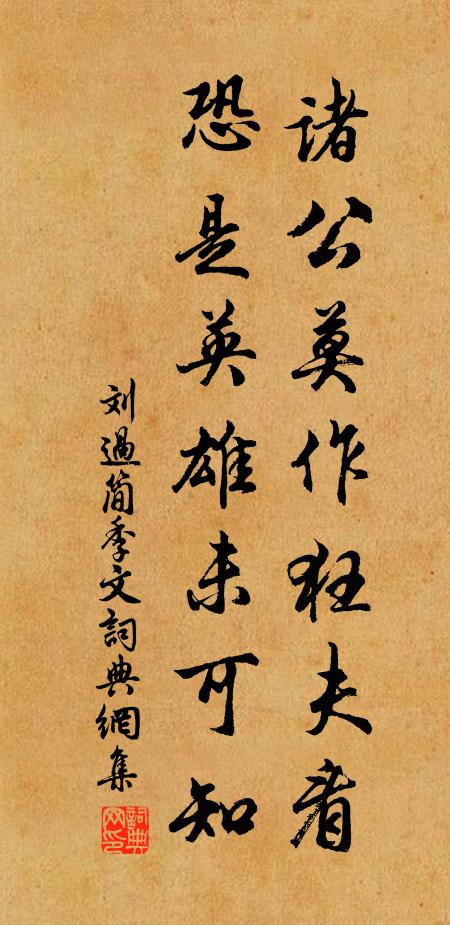 諸公莫作狂夫看
恐是英雄未可知
刘過简季文詞典網集
詞典網印